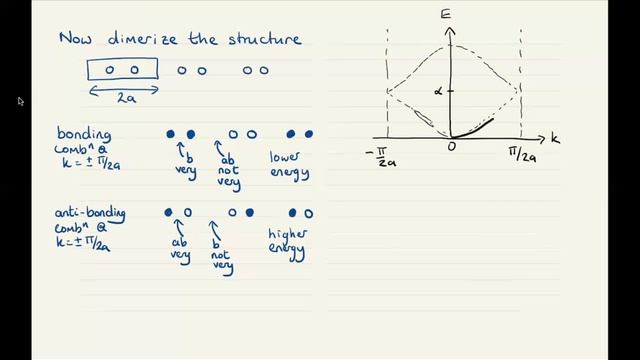 Now dimerize the structure
2a
bonding
combⁿ @
k = ± π/2a
b
very
ab
not
very
lower
energy
anti-bonding
combⁿ @
k = ± π/2a
ab
very
b
not
very
higher
energy
E
α
k
-π/2a
0
π/2a